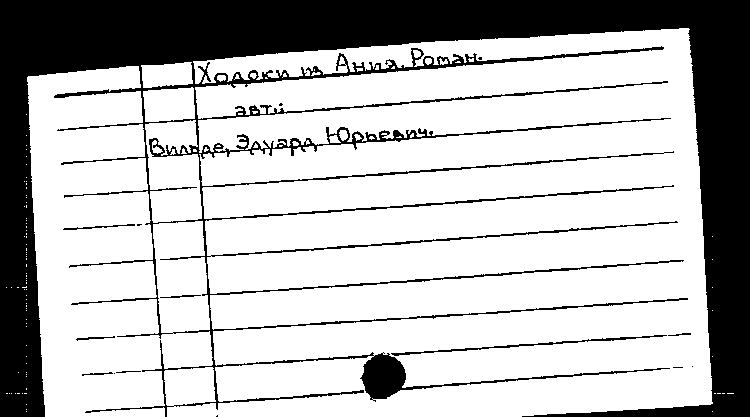 Ходоки из Ания. Роман.
авт.:
Вильде, Эдуард Юрьевич.